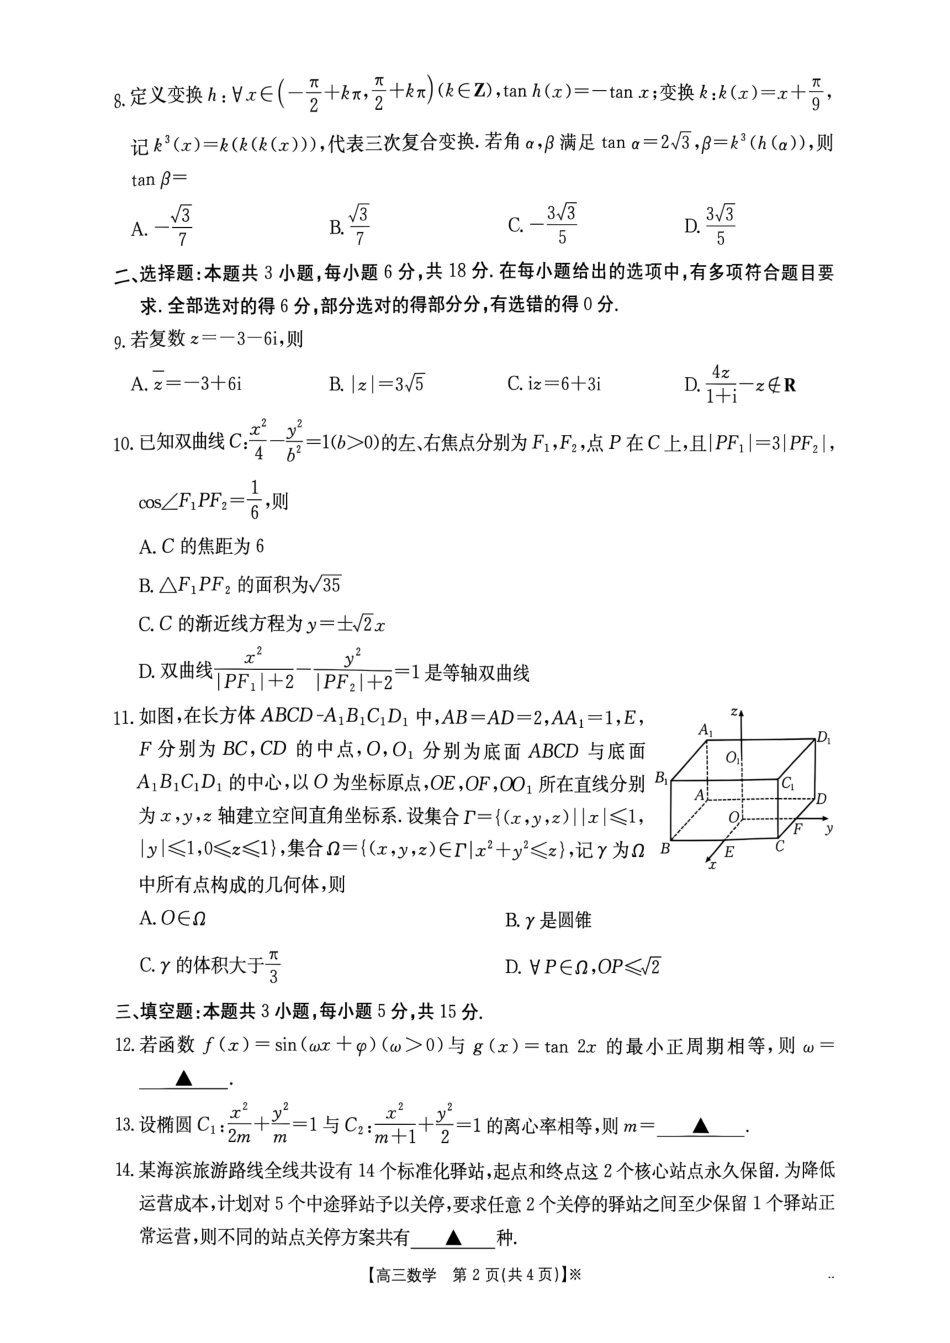 8. 定义变换 h: ∀x∈(−π/2+kπ, π/2+kπ)(k∈Z), tan h(x)=−tan x;变换 k:k(x)=x+π/9,
记 k³(x)=k(k(k(x))),代表三次复合变换. 若角 α,β 满足 tan α=2√3,β=k³(h(α)),则
tan β=
A. −√3/7 B. √3/7 C. −3√3/5 D. 3√3/5
二、选择题:本题共 3 小题,每小题 6 分,共 18 分. 在每小题给出的选项中,有多项符合题目要
求. 全部选对的得 6 分,部分选对的得部分分,有选错的得 0 分.
9. 若复数 z=−3−6i,则
A. z̅=−3+6i B. |z|=3√5 C. iz=6+3i D. 4z/(1+i)−z∉R
10. 已知双曲线 C: x²/4−y²/b²=1(b>0)的左、右焦点分别为 F₁,F₂,点 P 在 C 上,且|PF₁|=3|PF₂|,
cos∠F₁PF₂=1/6,则
A. C 的焦距为 6
B. △F₁PF₂ 的面积为√35
C. C 的渐近线方程为 y=±√2x
D. 双曲线 x²/(|PF₁|+2)−y²/(|PF₂|+2)=1 是等轴双曲线
11. 如图,在长方体 ABCD-A₁B₁C₁D₁ 中,AB=AD=2,AA₁=1,E,
F 分别为 BC,CD 的中点,O,O₁ 分别为底面 ABCD 与底面
A₁B₁C₁D₁ 的中心,以 O 为坐标原点,OE,OF,OO₁ 所在直线分别
为 x,y,z 轴建立空间直角坐标系. 设集合 Γ={(x,y,z)||x|≤1,
|y|≤1,0≤z≤1},集合 Ω={(x,y,z)∈Γ|x²+y²≤z},记 γ 为 Ω
中所有点构成的几何体,则
z
A₁ D₁
O₁
B₁ C₁
A D
O F y
B E C
x
A. O∈Ω B. γ 是圆锥
C. γ 的体积大于 π/3 D. ∀P∈Ω,OP≤√2
三、填空题:本题共 3 小题,每小题 5 分,共 15 分.
12. 若函数 f(x)=sin(ωx+φ)(ω>0)与 g(x)=tan 2x 的最小正周期相等,则 ω=
▲ .
13. 设椭圆 C₁: x²/2m+y²/m=1 与 C₂: x²/(m+1)+y²/2=1 的离心率相等,则 m= ▲ .
14. 某海滨旅游路线全线共设有 14 个标准化驿站,起点和终点这 2 个核心站点永久保留. 为降低
运营成本,计划对 5 个中途驿站予以关停,要求任意 2 个关停的驿站之间至少保留 1 个驿站正
常运营,则不同的站点关停方案共有 ▲ 种.
【高三数学 第 2 页(共 4 页)】※